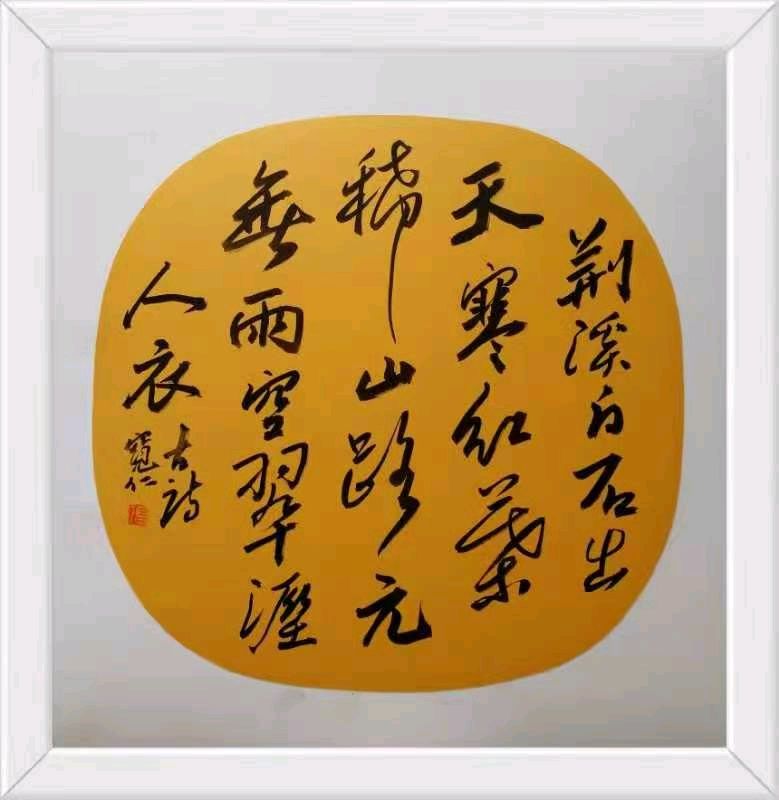 荆溪白石出
天寒红葉
稀山路元
無雨空翠溼
人衣
古诗
寬仁